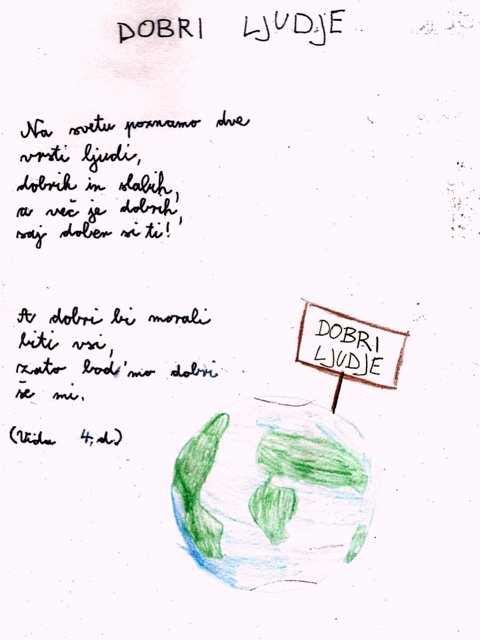 DOBRI LJUDJE
Na svetu poznamo dve
vrsti ljudi,
dobrih in slabih,
a več je dobrih,
saj dober si ti!
A dobri bi morali
biti vsi,
zato bod'mo dobri
še mi.
(Vidu 4.d.)
DOBRI
LJUDJE